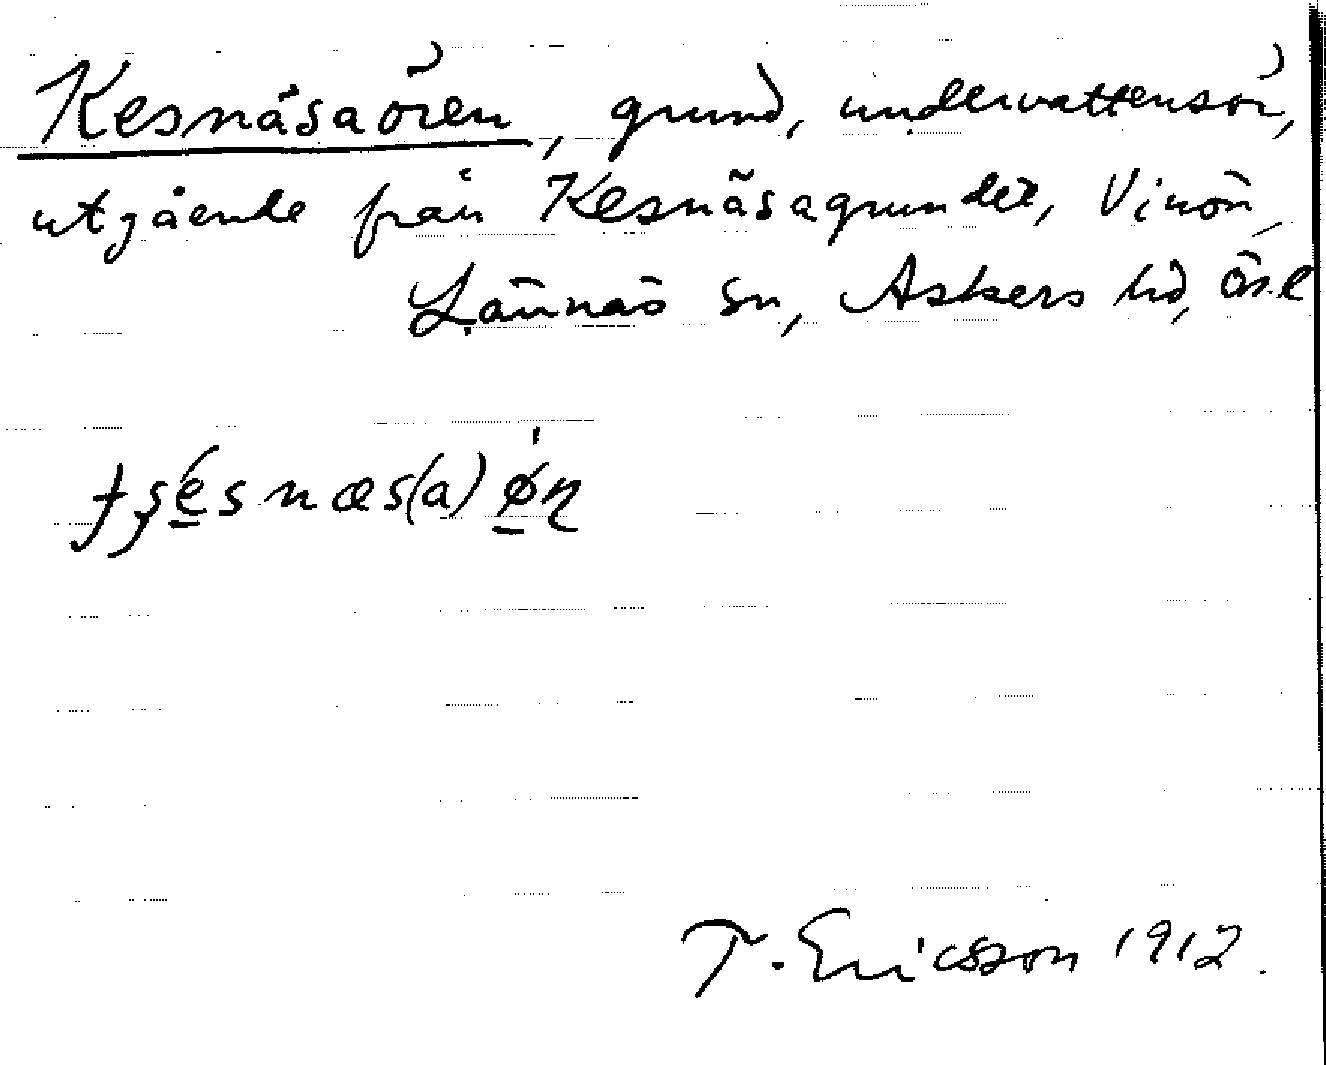 Kesnäsaören, grund, undervattensör,
utgående från Kesnäsagrundet, Vinön,
Lännäs sn, Askers hd, Ör.l
T. Ericsson 1912.